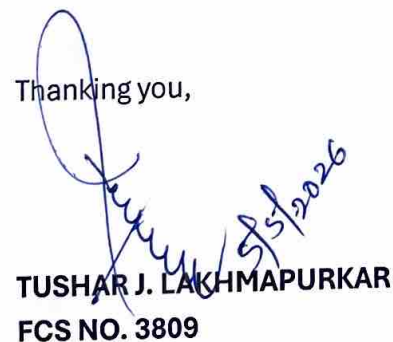 Thanking you,
5/5/2026
TUSHAR J. LAKHMAPURKAR
FCS NO. 3809